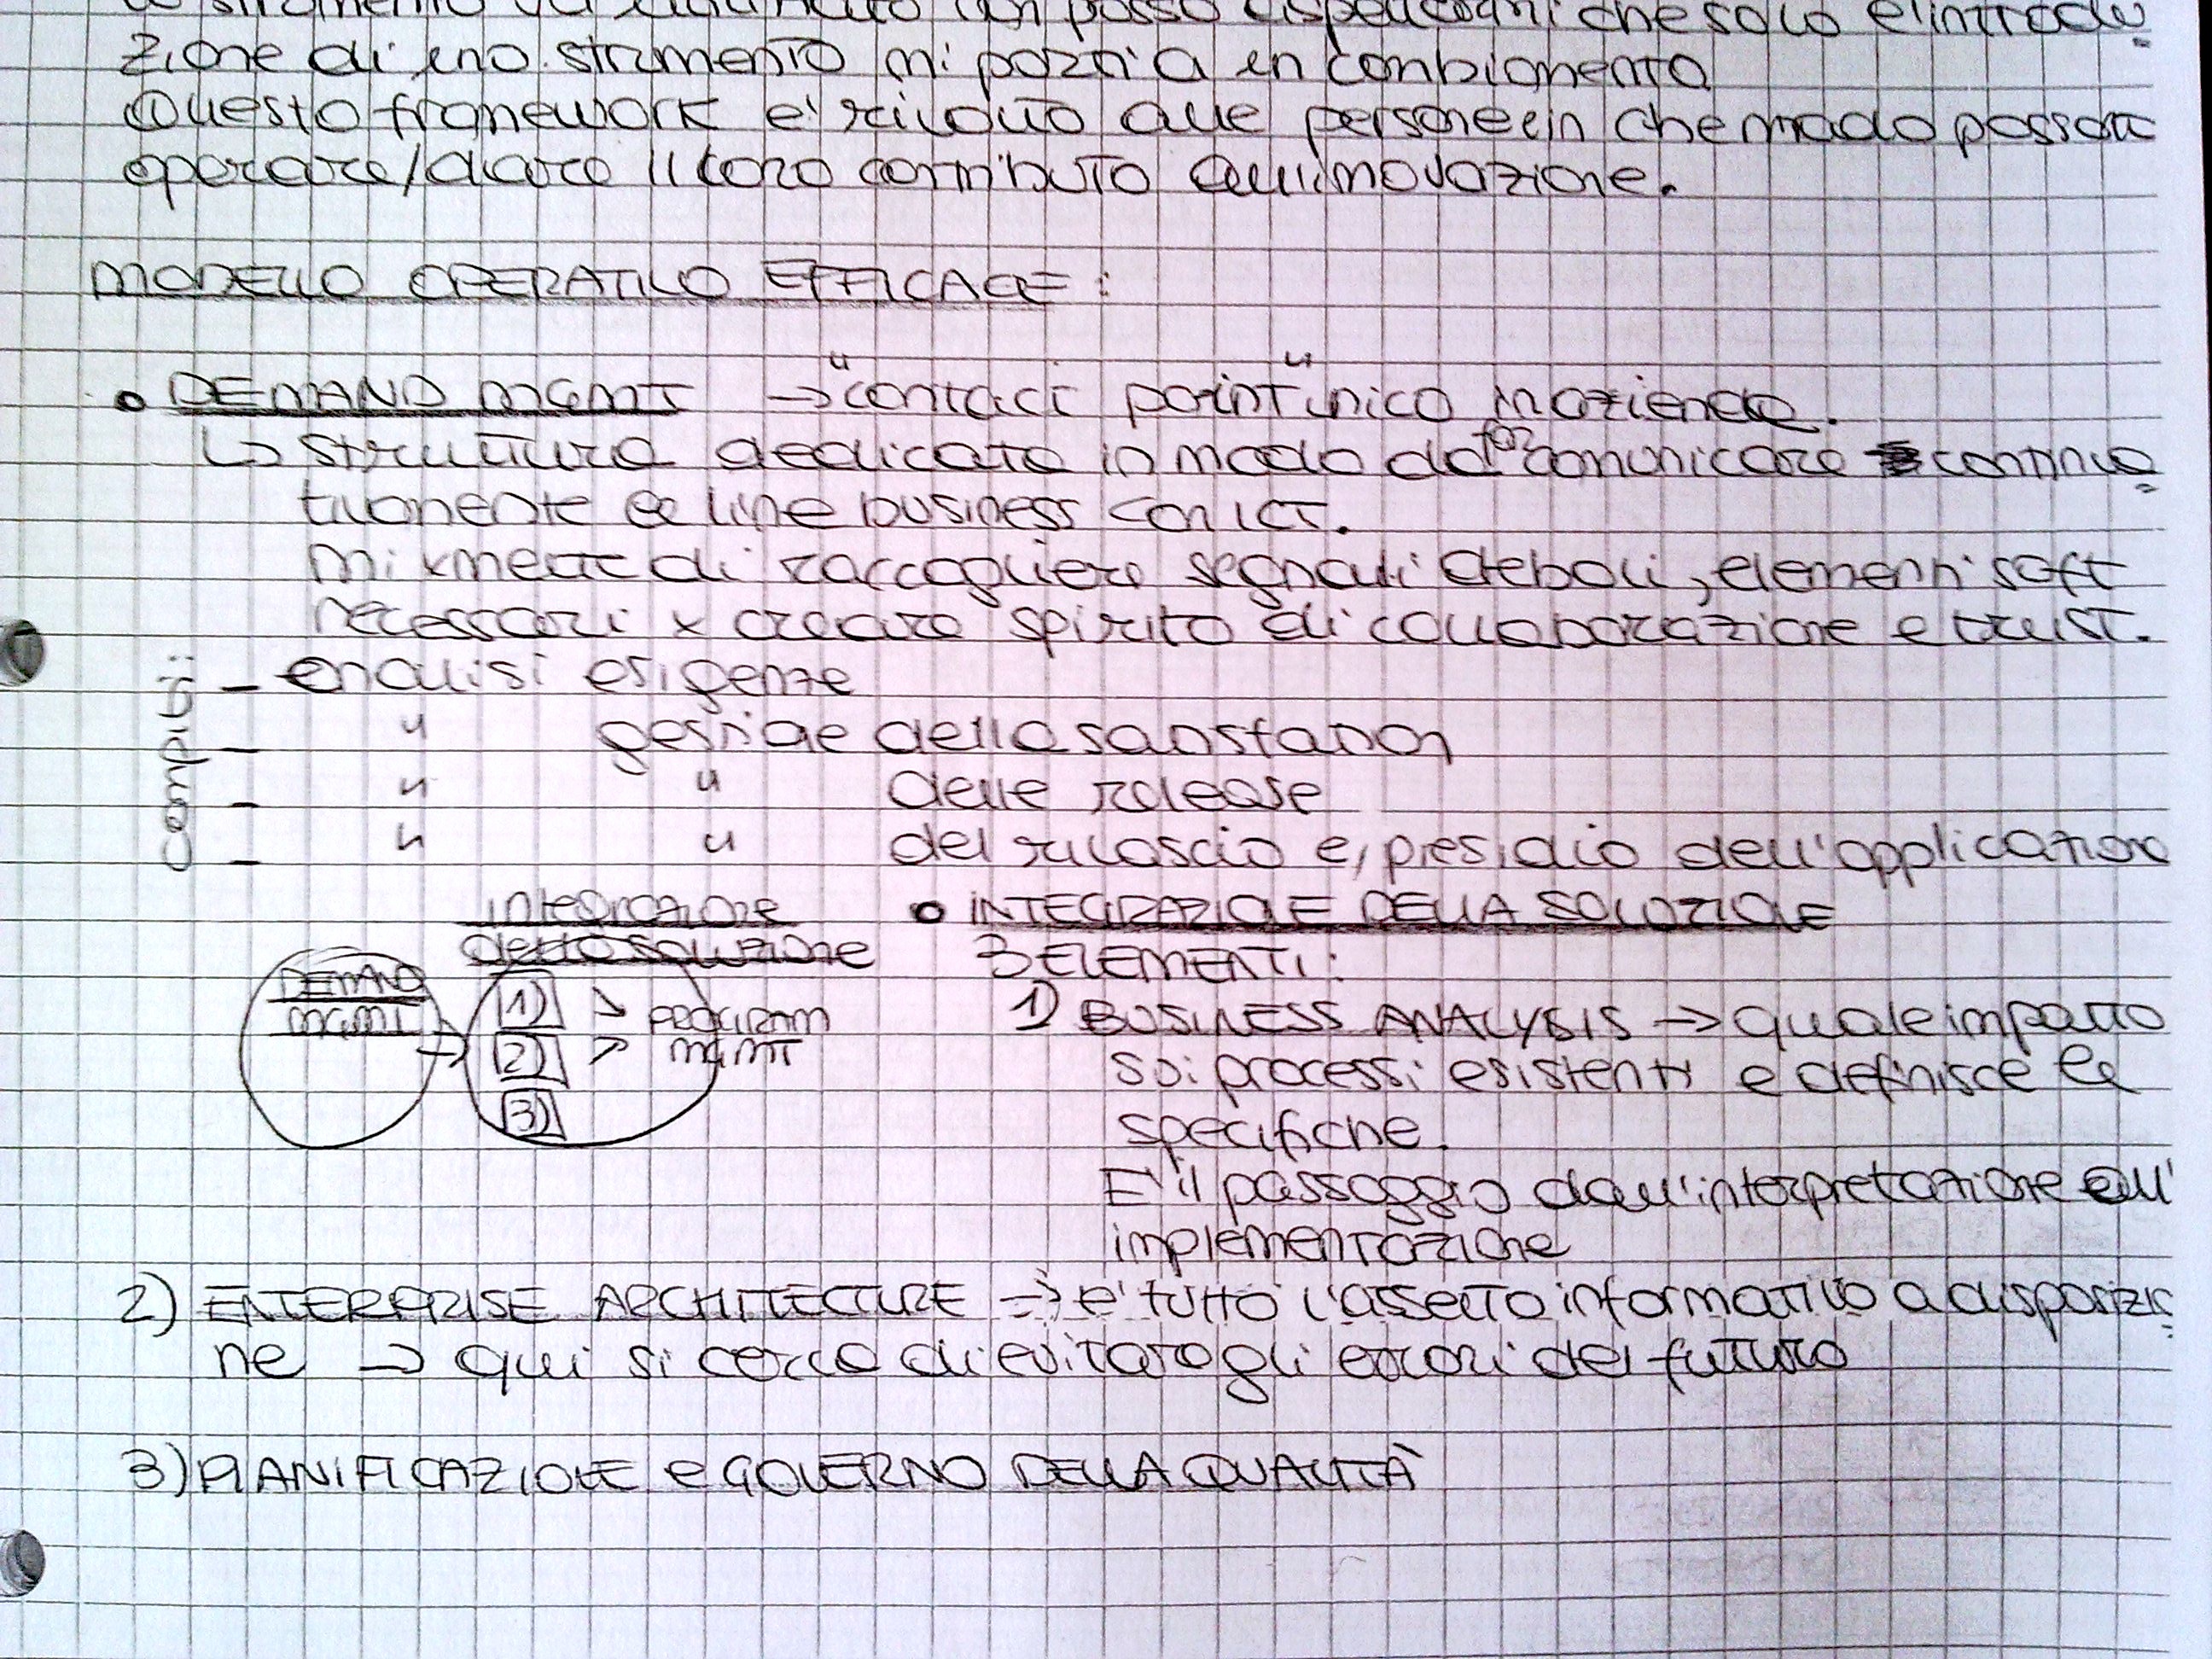 lo strumento va non posso aspettarmi che solo l'introdu
zione di uno strumento mi porti a un cambiamento
Questo framework e' rivolto alle persone e in che modo possono
operare/dare il loro contributo all'innovazione.
MODELLO OPERATIVO EFFICACE:
• DEMAND MGMT → "contact point" unico in azienda.
↳ struttura dedicata in modo da far comunicare continua
tivamente le line business con ICT.
Mi xmette di raccogliere segnali deboli, elementi soft
necessari x creare spirito di collaborazione e trust.
compiti:
- analisi esigenze
- " gestione della satisfaction
- " " delle release
- " " del rilascio e, presidio dell'applicazione
integrazione
della soluzione
DEMAND
MGMT
→
1)
2)
3)
> PROGRAM
> MGMT
• INTEGRAZIONE DELLA SOLUZIONE
3 ELEMENTI:
1) BUSINESS ANALYSIS → quale impatto
sui processi esistenti e definisce le
specifiche.
E' il passaggio dall'interpretazione all'
implementazione
2) ENTERPRISE ARCHITECTURE → e' tutto l'assetto informativo a disposizio
ne → qui si cerca di evitare gli errori del futuro
3) PIANIFICAZIONE e GOVERNO DELLA QUALITÀ